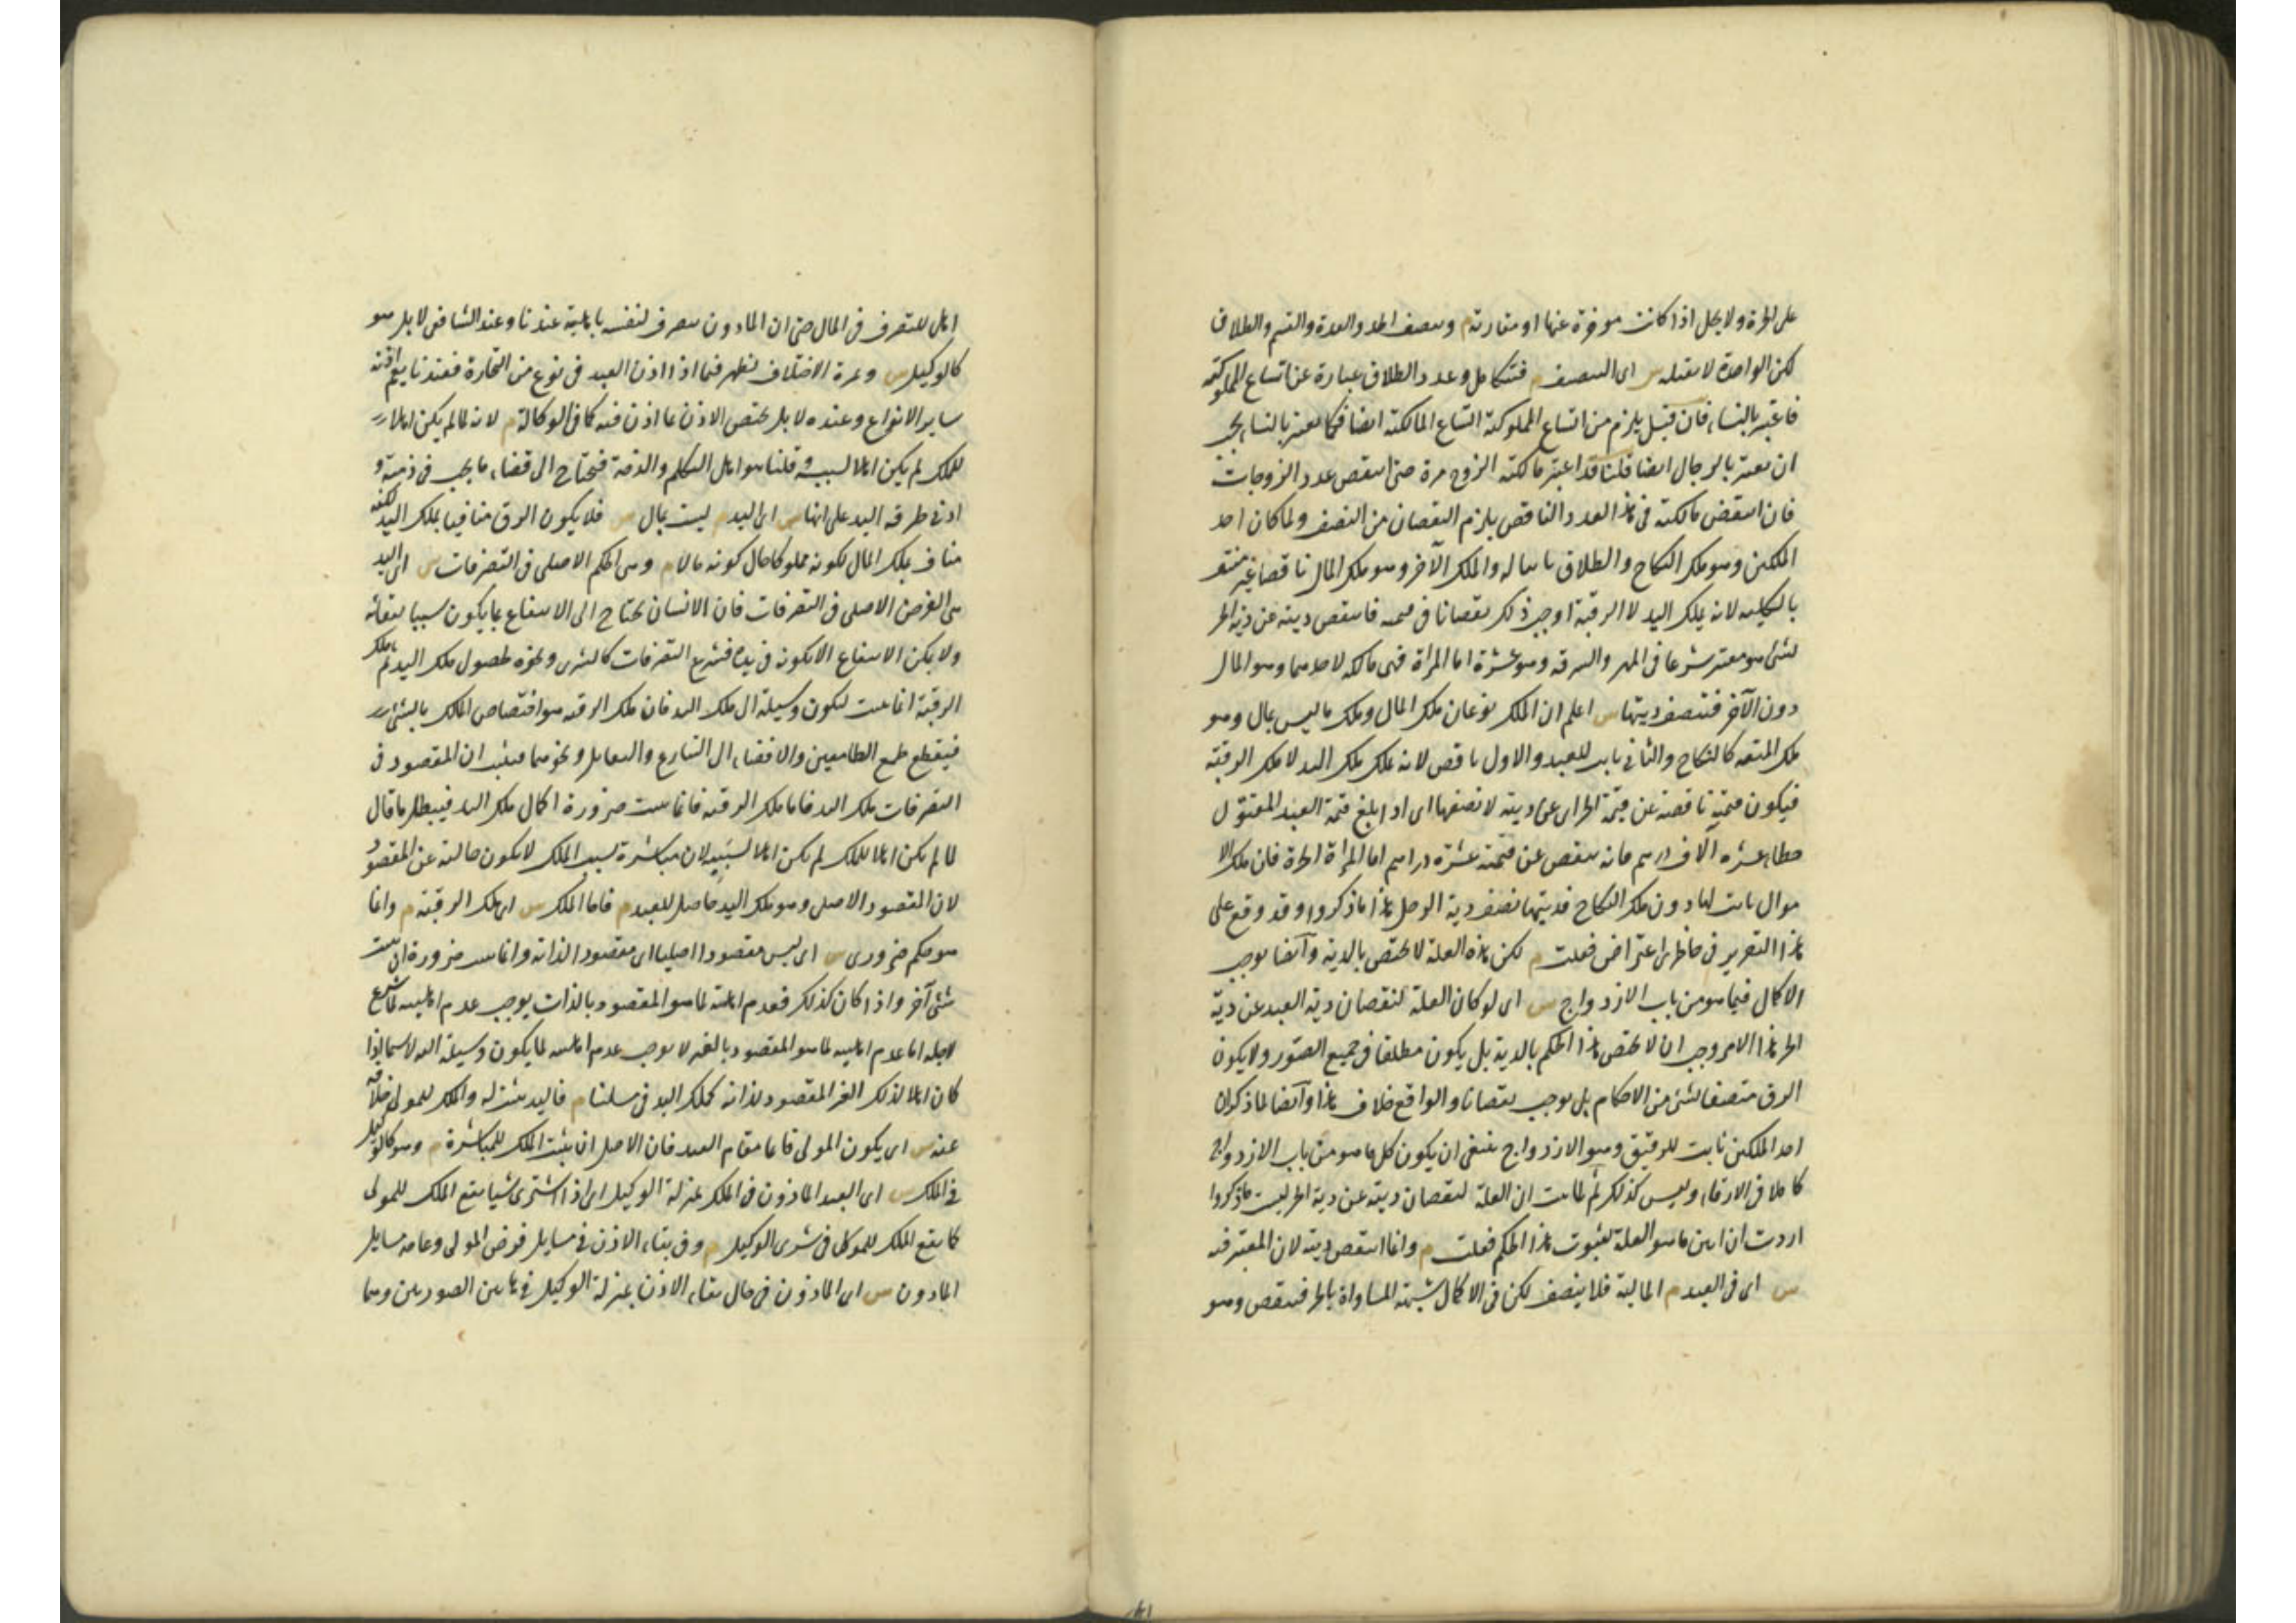 على الحرة ولا يحل اذا كانت موخرة عنها او مقارنة م وينصف الحد والعدة والقسم والطلاق
لكن الواحدة لا تقبله س اى التنصيف م فتتكامل وعدد الطلاق عبارة عن اتساع المملوكية
فاعتبر بالنساء فان قيل يلزم من اتساع المملوكية اتساع المالكية ايضا فكما يعتبر بالنساء يجب
ان يعتبر بالرجال ايضا قلنا قد اعتبر مالكية الزوج مرة حتى انتقص عدد الزوجات
فان انتقض مالكيته فى هذا العدد الناقص يلزم النقصان من النصف ولما كان احد
الملكين وهو ملك النكاح والطلاق ثابتا له والملك الآخر وهو ملك المال ناقصا غير منتف
بالكلية لانه يملك اليد لا الرقبة اوجب ذلك نقصانا فى قيمته فانتقص ديته عن دية الحر
لشئ هو معتبر شرعا فى المهر والسرقة وهو عشرة اما المراة فهى مالكة لاحدهما وهو المال
دون الآخر فتنصف ديتها س اعلم ان الملك نوعان ملك المال وملك ما ليس بمال وهو
ملك المتعة كالنكاح والثانى ثابت للعبد والاول ناقص لانه يملك ملك اليد لا ملك الرقبة
فيكون قيمته ناقصة عن قيمة الحر اى عن ديته لا نصفها اى اذا بلغ قيمة العبد المقتول
خطاء عشرة آلاف درهم فانه ينقص عن قيمته عشرة دراهم اما المرأة الحرة فان ملك الا
موال ثابت لها دون ملك النكاح فديتها نصف دية الرجل هذا ما ذكروا وقد وقع على
هذا التقرير فى خاطرى اعتراض فقلت م لكن هذه العلة لا تختص بالدية وآيضا يوجب
الاكمال فيما هو من باب الازدواج س اى لو كان العلة لنقصان دية العبد عن دية
الحر هذا الامر وجب ان لا يختص هذا الحكم بالدية بل يكون مطلقا فى جميع الصور ولا يكون
الرق منصفا لشئ من الاحكام بل يوجب نقصانا والواقع خلاف هذا وآيضا لما ذكر ان
احد الملكين ثابت للرقيق وهو الازدواج ينبغى ان يكون كل ما هو من باب الازدواج
كاملا فى الارقاء وليس كذلك ثم لما ثبت ان العلة لنقصان ديته عن دية الحر ليست ما ذكروا
اردت ان ابين ما هو العلة لثبوت هذا الحكم فقلت م وانما انتقص ديته لان المعتبر فيه
س اى فى العبد م المالية فلا ينصف لكن فى الاكمال شبهة المساواة بالحر فينقص وهو
اهل للتصرف فى المال حتى ان الماذون يتصرف لنفسه باهلية عندنا وعند الشافعى لا بل هو
كالوكيل س وثمرة الاختلاف تظهر فيما اذا اذن العبد فى نوع من التجارة فعندنا يعم اذنه
ساير الانواع وعنده لا بل يختص الاذن بما اذن فيه كما فى الوكالة م لانه لما لم يكن اهلا
للملك لم يكن اهلا لسببه قلنا هو اهل التكلم والذمة فيحتاج الى قضاء ما يجب فى ذمته و
ادنى طرقه اليد على انها س اى اليد م ليست بمال س فلا يكون الرق منافيا بملك اليد لكنه
مناف بملك المال لكونه مملوكا حال كونه مالا م وهى الحكم الاصلى فى التصرفات س اى اليد
هى الغرض الاصلى فى التصرفات فان الانسان يحتاج الى الانتفاع بما يكون سببا لبقائه
ولا يمكن الانتفاع الا بكونه فى يده فشرع التصرفات كالشرى ونحوه لحصول ملك اليد ثم ملك
الرقبة انما يثبت ليكون وسيلة الى ملك اليد فان ملك الرقبة هو اختصاص المالك بالشئ
فينقطع طمع الطامعين والافضاء الى التنازع والتقابل ونحوهما فيثبت ان المقصود فى
التصرفات ملك اليد فاما ملك الرقبة فانما يثبت ضرورة اكمال ملك اليد فيبطل ما قال
لما لم يكن اهلا للملك لم يكن اهلا لسببه لان مباشرة سبب الملك لا يكون خالية عن المقصود
لان المقصود الاصلى وهو ملك اليد حاصل للعبد م فاما الملك س اى ملك الرقبة م وانما
هو حكم ضرورى س اى ليس مقصودا اصليا اى مقصودا لذاته وانما يثبت ضرورة ان يثبت
شئ آخر واذا كان كذلك فعدم اهلية لما هو المقصود بالذات يوجب عدم اهليته لما شرع
لاجله اما عدم اهليته لما هو المقصود بالغير لا يوجب عدم اهليته لما يكون وسيلة اليه لا سيما اذا
كان اهلا لذلك الغير المقصود لذاته كملك اليد فى مسئلتنا م فاليد يثبت له والملك للمولى خلافة
عنه س اى يكون المولى قائما مقام العبد فان الاصل ان يثبت الملك للمباشرة م وهو كالوكيل
فى الملك س اى العبد الماذون فى الملك بمنزلة الوكيل اى اذا اشترى شيا يقع الملك للمولى
كما يقع الملك للموكل فى شرى الوكيل م وفى بقاء الاذن فى مسايل فرض المولى وعامة مسايل
الماذون س اى الماذون فى حال بقاء الاذن بمنزلة الوكيل فى هاتين الصورتين وهما